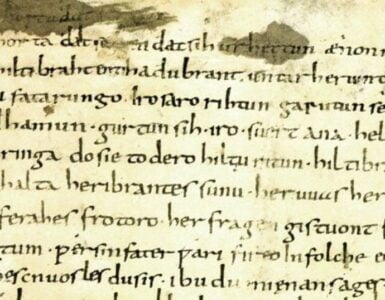 orta dat se n dat sih urhettun ænon
hiltibraht enti hadubrant · untar heriun
u fatarungo · iro saro rihtun garutun se
dhamun · gurtun sih · iro · suert ana · hel
ringa do sie to dero hiltu ritun · hiltib
halta heribrantes sunu · her uuas her
ferahes frotoro · her fragen gistuont f
tum · ƿer sin fater ƿari fireo In folche e
hes cnuosles du sis · ibu du mi enan sages